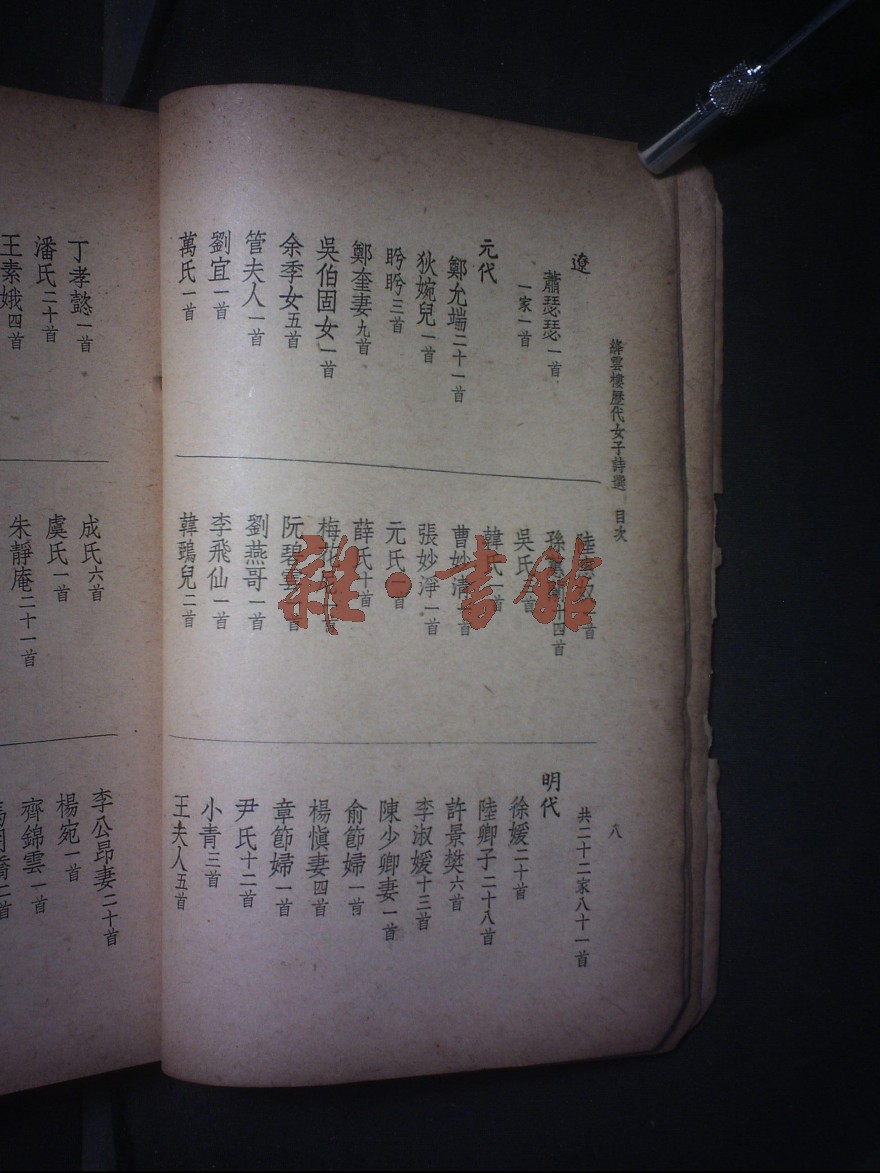 絳雲樓歷代女子詩選 目次
八
遼
蕭瑟瑟一首
一家一首
元代
鄭允端二十一首
狄婉兒一首
盻盻三首
鄭奎妻九首
吳伯固女一首
余季女五首
管夫人一首
劉宜一首
萬氏一首
陸
首
孫
十四首
吳氏
首
韓氏一首
曹妙清
首
張妙淨一首
元氏
首
薛氏十首
梅花
首
阮碧
首
劉燕哥一首
李飛仙一首
韓鵶兒二首
共二十二家八十一首
明代
徐媛二十首
陸卿子二十八首
許景樊六首
李淑媛十三首
陳少卿妻一首
俞節婦一首
楊愼妻四首
章節婦一首
尹氏十二首
小青三首
王夫人五首
丁孝懿一首
潘氏二十首
王素娥四首
成氏六首
虞氏一首
朱靜庵二十一首
李公昂妻二十首
楊宛一首
齊錦雲一首
二首
雜·書館